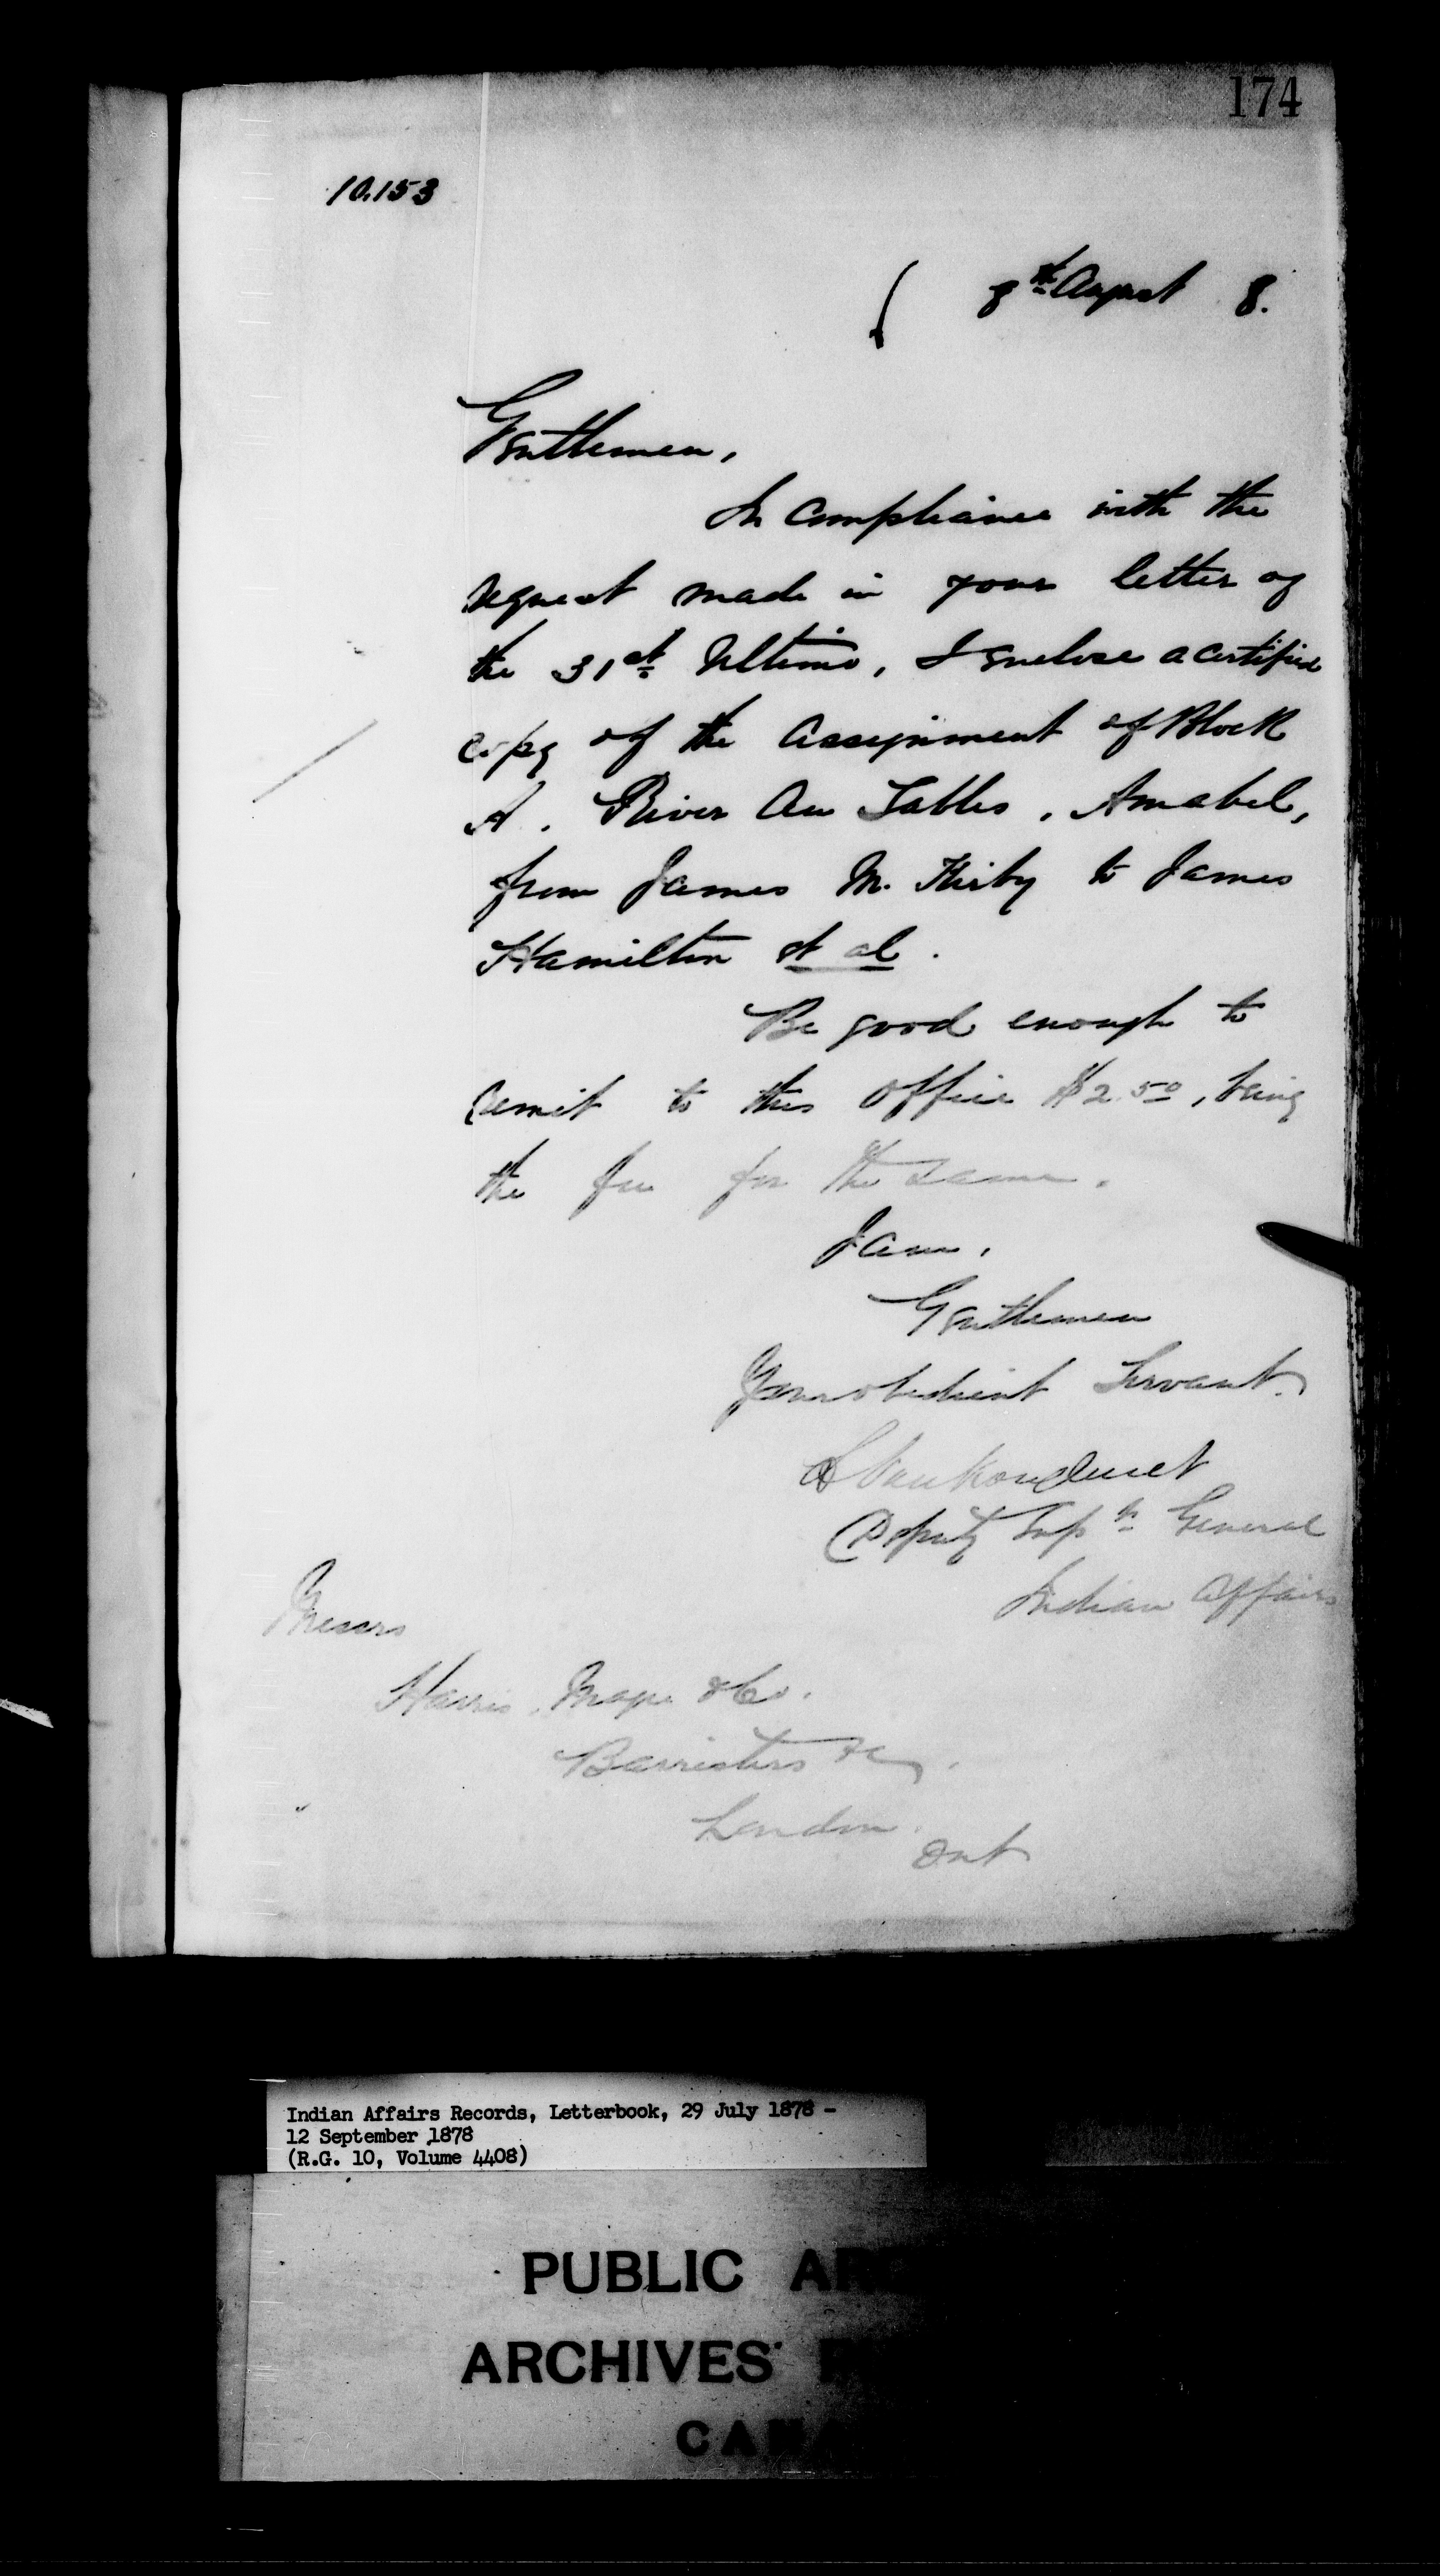 174
10.153
8th August 8.
Gentlemen,
In compliance with the
request made in your letter of
the 31st Ultimo, I enclose a certified
copy of the assignment of Block
A. River Au Sables, Amabel,
from James M. Kirby to James
Hamilton et al.
Be good enough to
remit to this office $2.50, being
the fee for the same.
I am,
Gentlemen
Your obedient Servant.
L Vankoughnet
Deputy Supt General
Indian Affairs
Messrs
Harris, Magee & Co.
Barristers &c,
London.
Ont
Indian Affairs Records, Letterbook, 29 July 1878 -
12 September 1878
(R.G. 10, Volume 4408)
PUBLIC AR
ARCHIVES
CANA